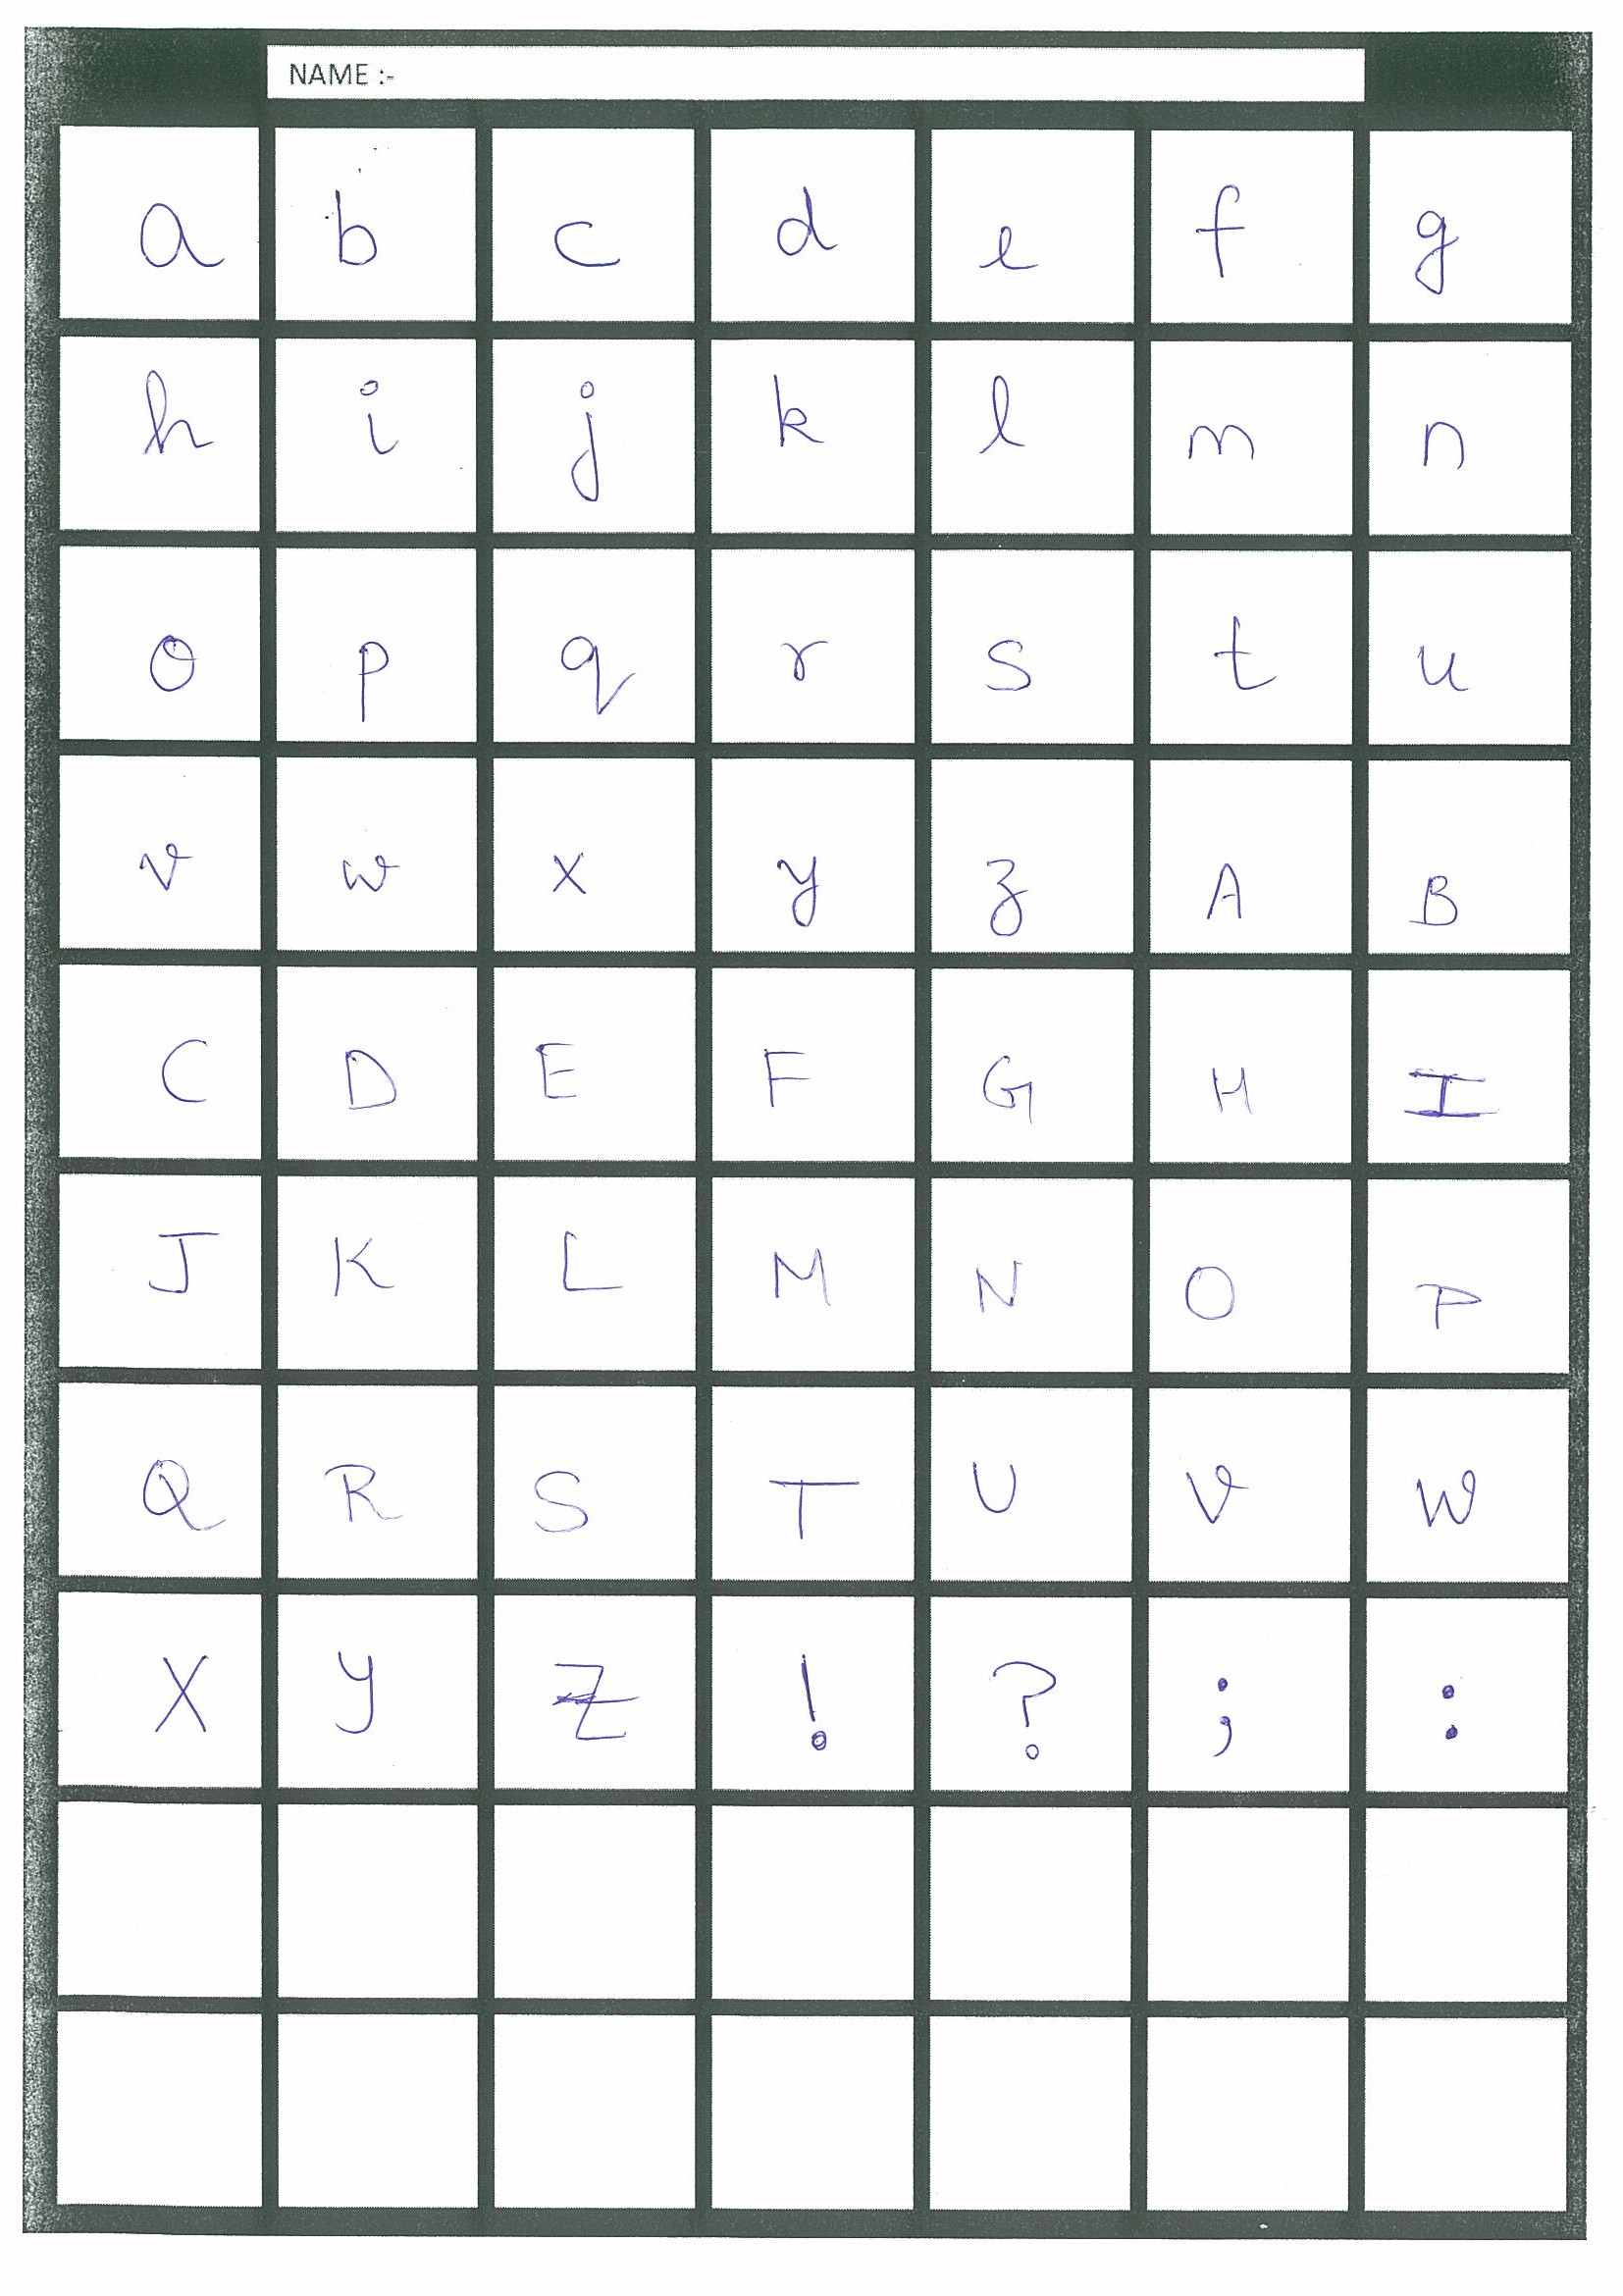 NAME :-
a b c d e f g
h i j k l m n
o p q r s t u
v w x y z A B
C D E F G H I
J K L M N O P
Q R S T U V W
X Y Z ! ? ; :